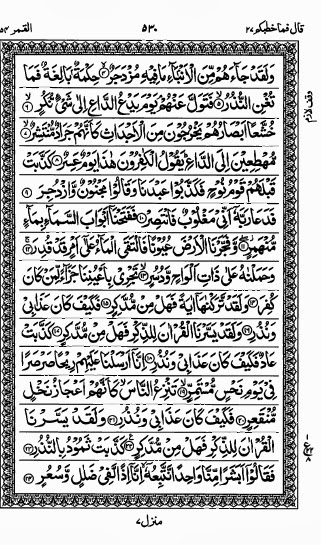 القمر ٥٤
٥٣٠
قال فما خطبکم ٢٧
وَلَقَدْ جَآءَهُمْ مِّنَ الْاَنْۢبَآءِ مَا فِيْهِ مُزْدَجَرٌ ۙ۴ حِكْمَةٌۢ بَالِغَةٌ فَمَا
تُغْنِ النُّذُرُ ۙ۵ فَتَوَلَّ عَنْهُمْ يَوْمَ يَدْعُ الدَّاعِ اِلٰى شَیْءٍ نُّكُرٍ ۙ۶
خُشَّعًا اَبْصَارُهُمْ يَخْرُجُوْنَ مِنَ الْاَجْدَاثِ كَاَنَّهُمْ جَرَادٌ مُّنْتَشِرٌ ۙ۷
مُّهْطِعِيْنَ اِلَى الدَّاعِ يَقُوْلُ الْكٰفِرُوْنَ هٰذَا يَوْمٌ عَسِرٌ ۸ كَذَّبَتْ
قَبْلَهُمْ قَوْمُ نُوْحٍ فَكَذَّبُوْا عَبْدَنَا وَقَالُوْا مَجْنُوْنٌ وَّازْدُجِرَ ۹
فَدَعَا رَبَّهٗۤ اَنِّیْ مَغْلُوْبٌ فَانْتَصِرْ ۱۰ فَفَتَحْنَاۤ اَبْوَابَ السَّمَآءِ بِمَآءٍ
مُّنْهَمِرٍ ۱۱ وَّفَجَّرْنَا الْاَرْضَ عُيُوْنًا فَالْتَقَی الْمَآءُ عَلٰۤى اَمْرٍ قَدْ قُدِرَ ۱۲
وَحَمَلْنٰهُ عَلٰى ذَاتِ اَلْوَاحٍ وَّدُسُرٍ ۱۳ تَجْرِیْ بِاَعْيُنِنَا جَزَآءً لِّمَنْ كَانَ
كُفِرَ ۱۴ وَلَقَدْ تَّرَكْنٰهَاۤ اٰيَةً فَهَلْ مِنْ مُّدَّكِرٍ ۱۵ فَكَيْفَ كَانَ عَذَابِیْ
وَنُذُرِ ۱۶ وَلَقَدْ يَسَّرْنَا الْقُرْاٰنَ لِلذِّكْرِ فَهَلْ مِنْ مُّدَّكِرٍ ۱۷ كَذَّبَتْ
عَادٌ فَكَيْفَ كَانَ عَذَابِیْ وَنُذُرِ ۱۸ اِنَّاۤ اَرْسَلْنَا عَلَيْهِمْ رِيْحًا صَرْصَرًا
فِیْ يَوْمِ نَحْسٍ مُّسْتَمِرٍّ ۱۹ تَنْزِعُ النَّاسَ كَاَنَّهُمْ اَعْجَازُ نَخْلٍ
مُّنْقَعِرٍ ۲۰ فَكَيْفَ كَانَ عَذَابِیْ وَنُذُرِ ۲۱ وَلَقَدْ يَسَّرْنَا
الْقُرْاٰنَ لِلذِّكْرِ فَهَلْ مِنْ مُّدَّكِرٍ ۲۲ كَذَّبَتْ ثَمُوْدُ بِالنُّذُرِ ۲۳
فَقَالُوْۤا اَبَشَرًا مِّنَّا وَاحِدًا نَّتَّبِعُهٗۤ اِنَّاۤ اِذًا لَّفِیْ ضَلٰلٍ وَّسُعُرٍ ۲۴
وقف لازم
منزل ٧